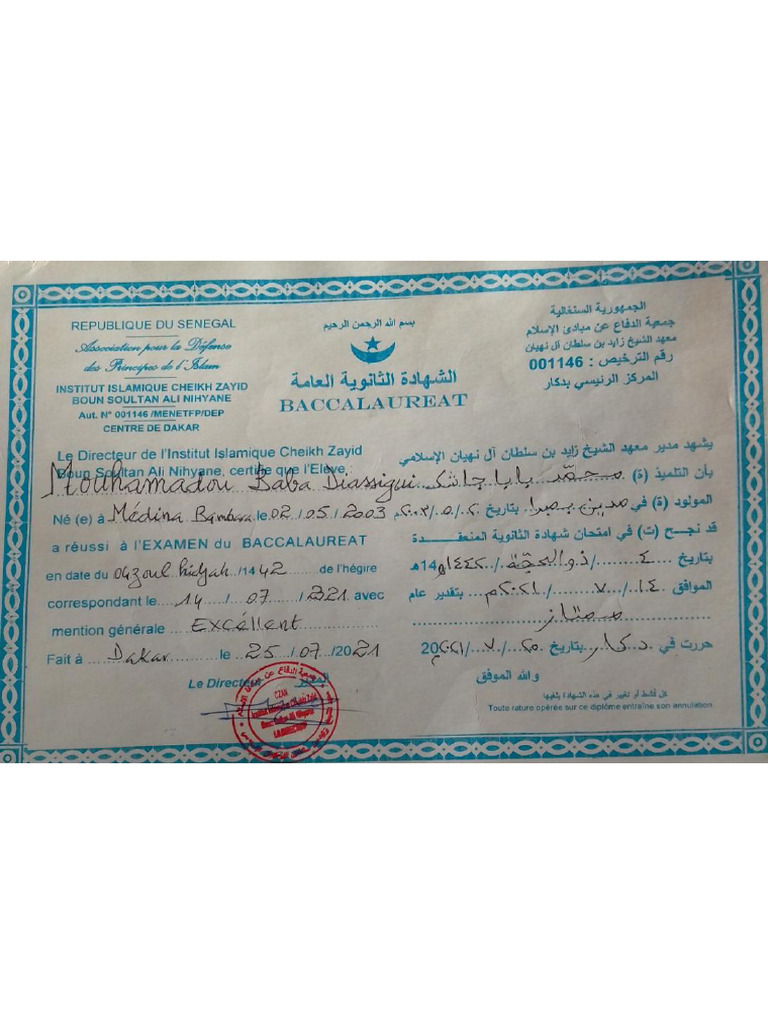 REPUBLIQUE DU SENEGAL
Association pour la Défense
des Principes de l'Islam
INSTITUT ISLAMIQUE CHEIKH ZAYID
BOUN SOULTAN ALI NIHYANE
Aut. N° 001146 /MENETFP/DEP
CENTRE DE DAKAR
بسم الله الرحمن الرحيم
الشهادة الثانوية العامة
BACCALAUREAT
الجمهورية السنغالية
جمعية الدفاع عن مبادئ الإسلام
معهد الشيخ زايد بن سلطان آل نهيان
رقم الترخيص : 001146
المركز الرئيسي بدكار
Le Directeur de l'Institut Islamique Cheikh Zayid
Boun Soultan Ali Nihyane, certifie que l'Eleve, :
Mouhamadou Baba Diassigui
Né (e) à Médina Bambara le 02 / 05 / 2003
a réussi à l'EXAMEN du BACCALAUREAT
en date du 04 zoul hidjah /1442 de l'hégire
correspondant le 14 / 07 / 2021 avec
mention générale Excéllent
Fait à Dakar le 25 / 07 /2021
Le Directeur
يشهد مدير معهد الشيخ زايد بن سلطان آل نهيان الإسلامي
بأن التلميذ (ة) محمد بابا
المولود (ة) في مدين بتاريخ ٢٠٠٣م
قد نجح (ت) في امتحان شهادة الثانوية المنعقدة
بتاريخ ٤ / ذو الحجة / ١٤٤٢ 14هـ
الموافق ١٤ / ٧ / ٢٠٢١م بتقدير عام
ممتاز
حررت في دكار بتاريخ / ٧ / ٢٠٢١م 20
والله الموفق
المدير
كل كشط أو تغيير في هذه الشهادة يلغيها
Toute rature opérée sur ce diplôme entraîne son annulation.
CZAN
Institut Islamique Cheikh Zaid